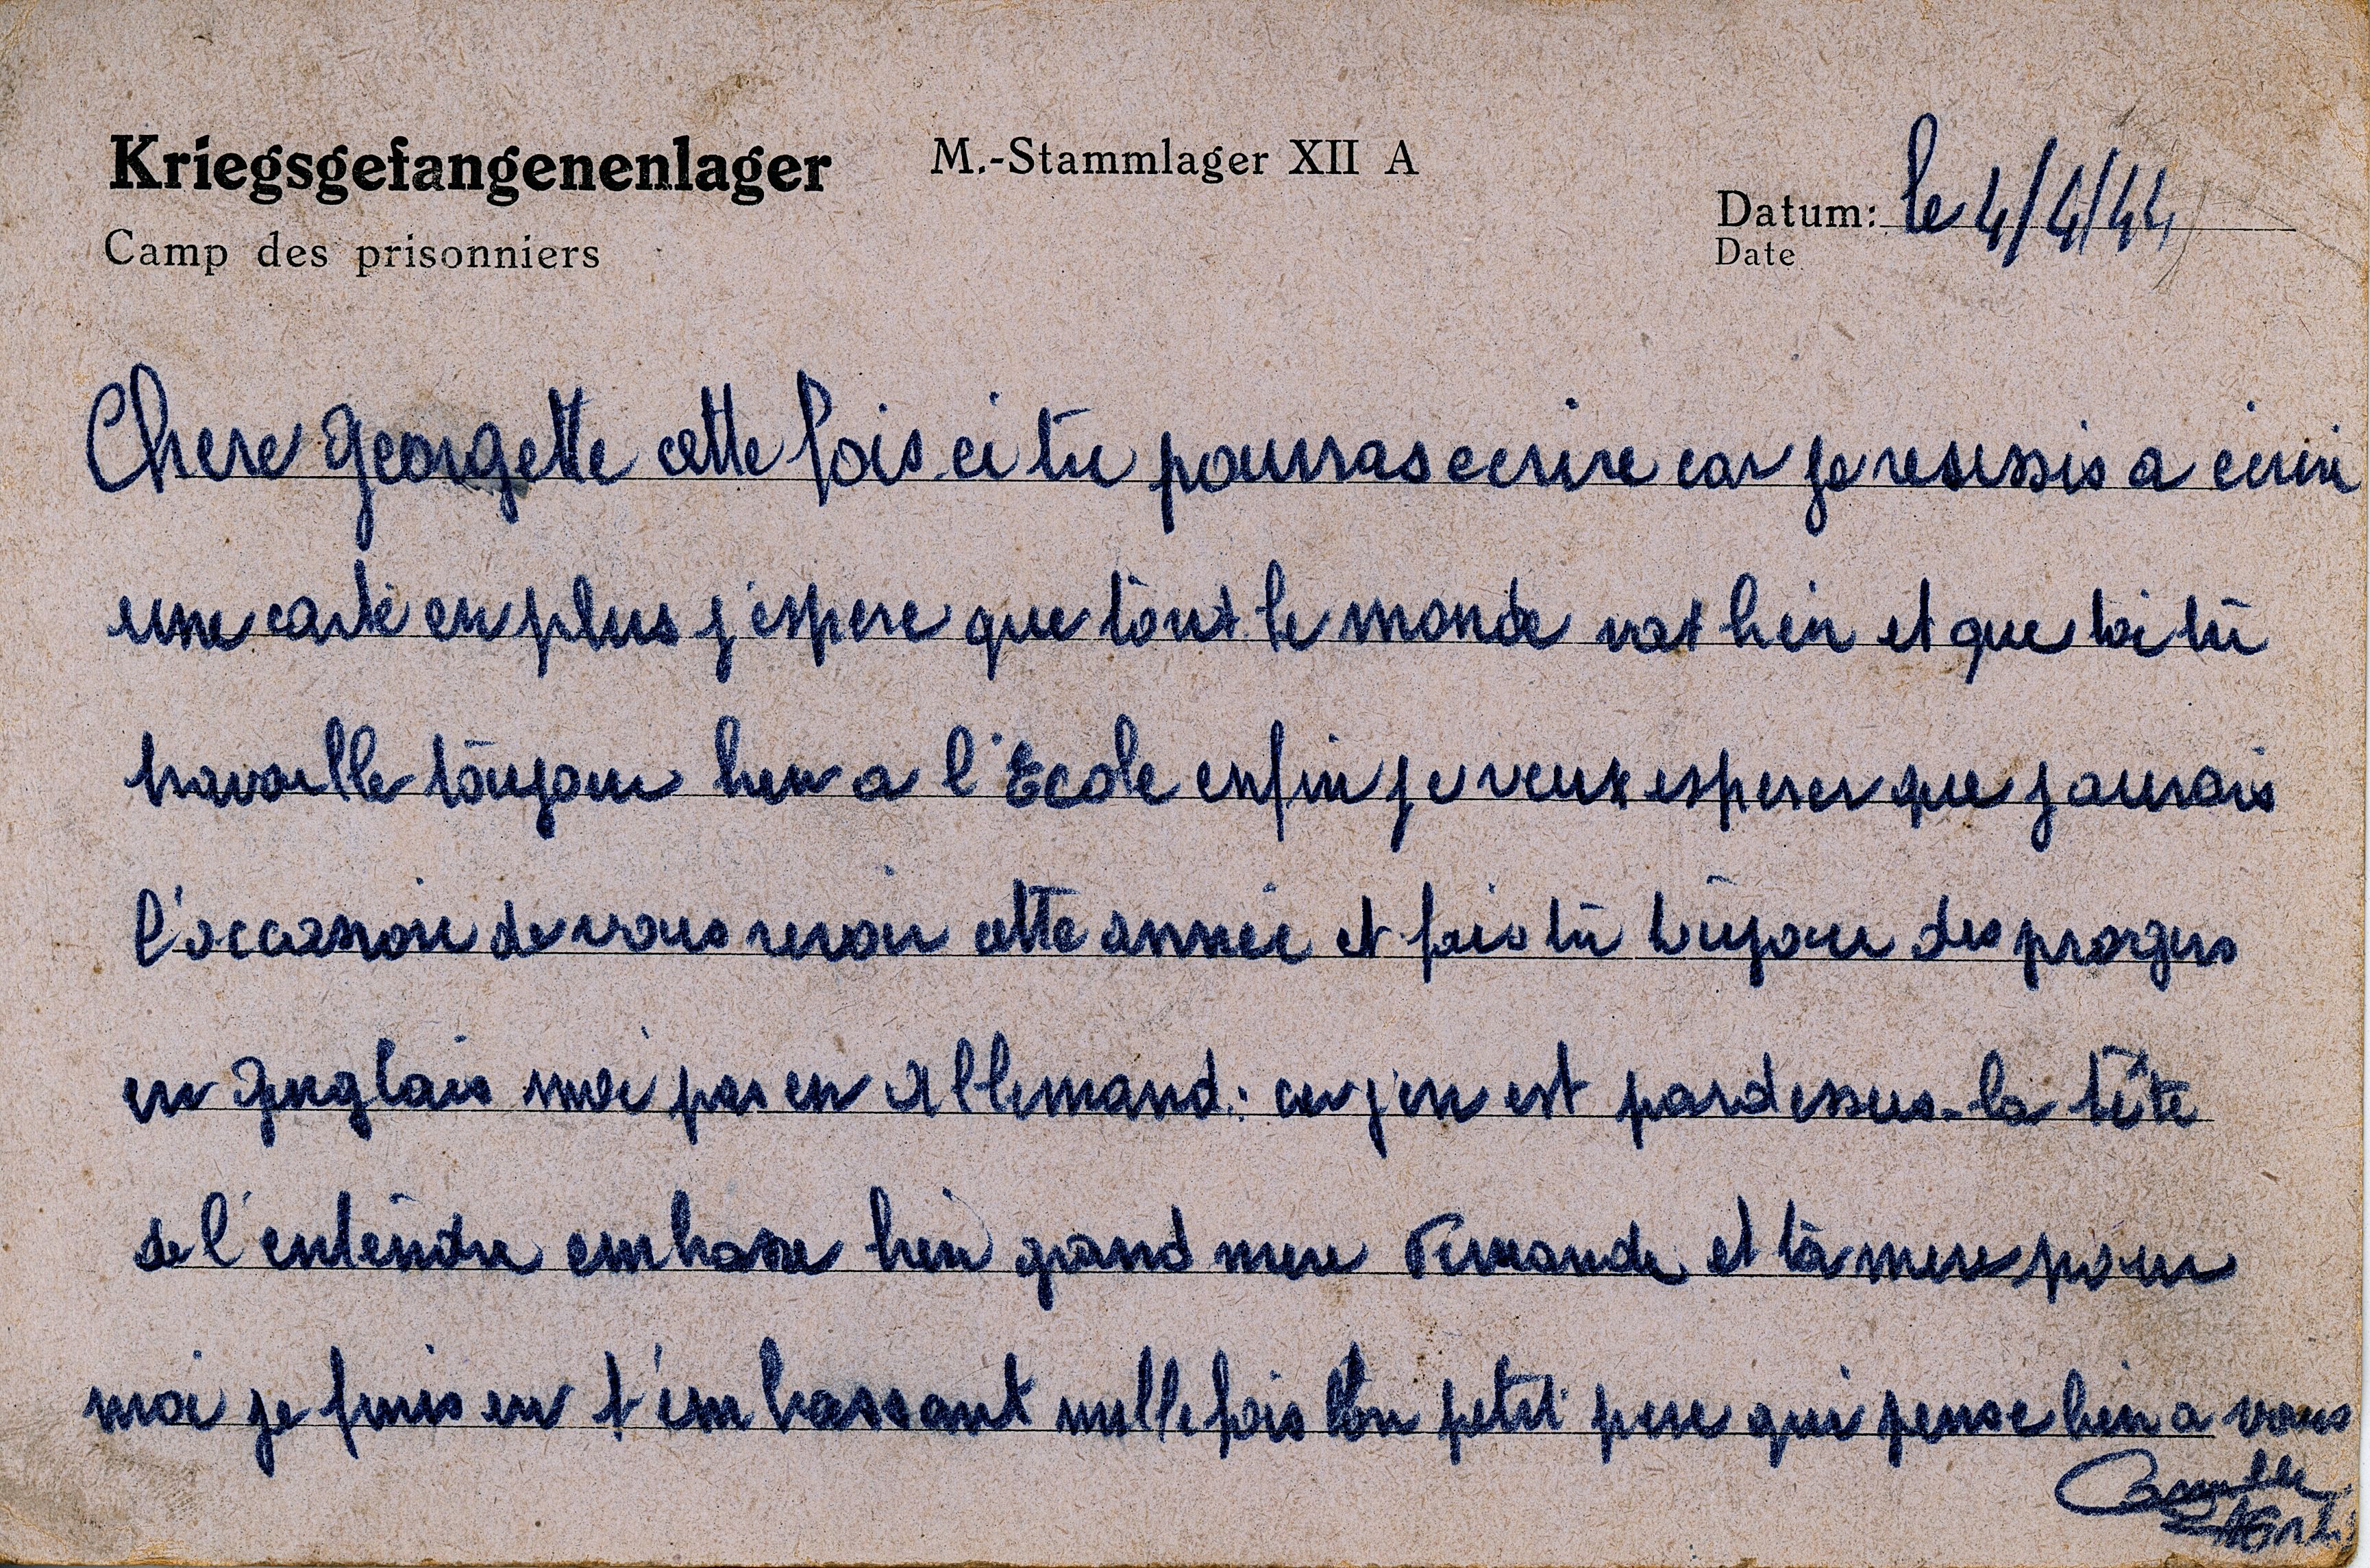 Kriegsgefangenenlager M.-Stammlager XII A
Camp des prisonniers
Datum: le 4/4/44
Date
Chere Georgette cette fois ci tu pourras ecrire car je reussis a ecrire
une carte en plus j'espere que tout le monde vat bien et que toi tu
travaille toujour bien a l'Ecole enfin je veux esperer que j aurais
l'occasion de vous revoir cette année et fais tu toujour des progres
en Anglais moi pas en Allemand : car j'en est pardessus la tête
de l'entendre embrasse bien grand mere Fernande et ta mere pour
moi je finis en t'embrassant mille fois ton petit pere qui pense bien a vous
Camille